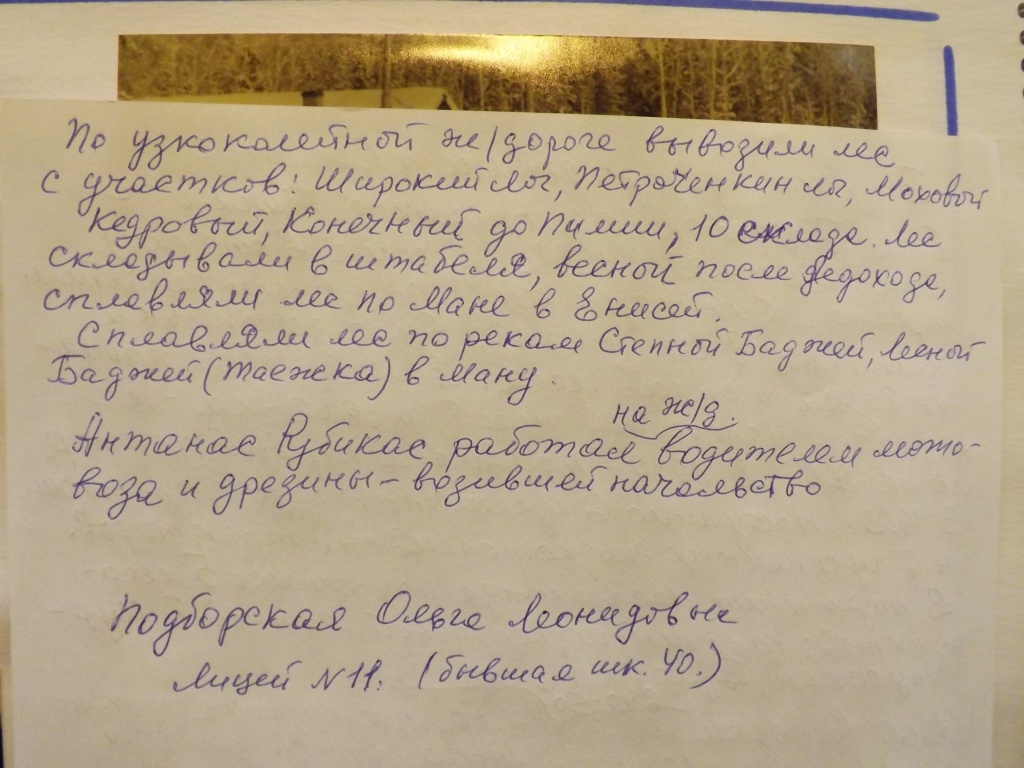 По узкоколейной ж/дороге вывозили лес
с участков: Широкий лог, Петраченкин лог, Моховый
Кедровый, Конечный до Пимии, 10 склада. Лес
складывали в штабеля, весной после ледохода,
сплавляли лес по Мане в Енисей.
Сплавляли лес по рекам Степной Баджей, Лесной
Баджей (Таежка) в Ману.
на ж/д.
Антанас Рубикас работал водителем мото-
воза и дрезины - возившей начальство
Подборская Ольга Леонидовна
Лицей N 11. (бывшая шк. 40.)